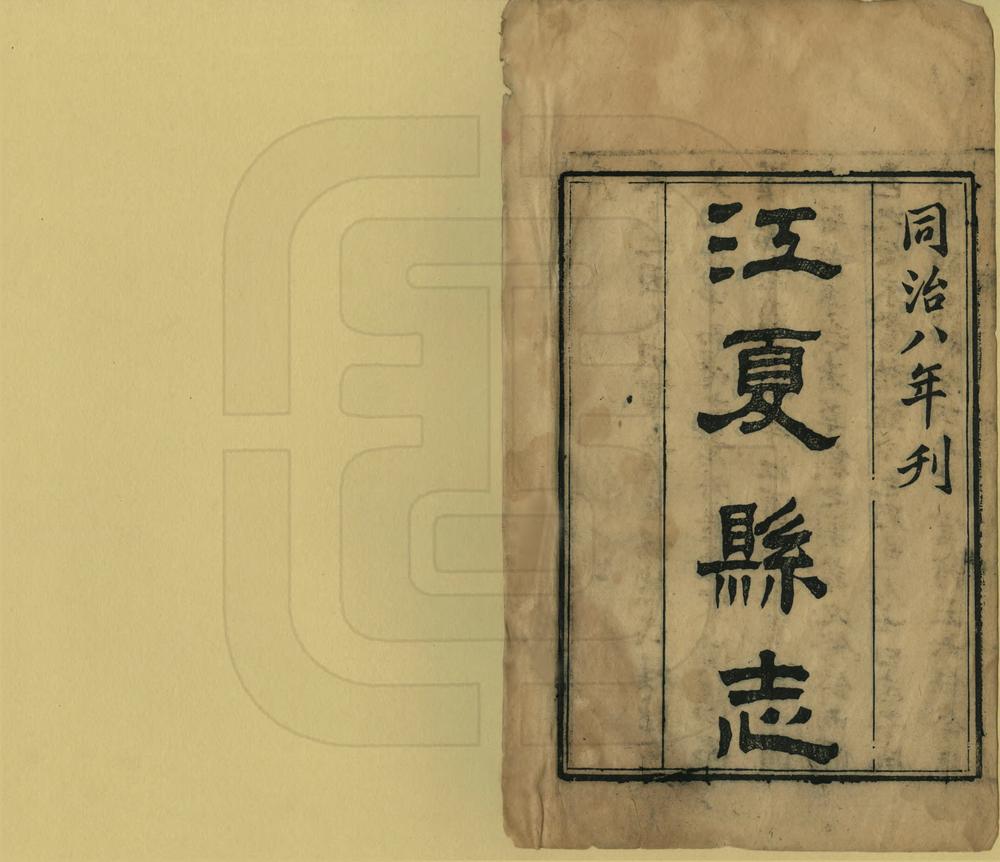 同治八年刊
江夏縣志